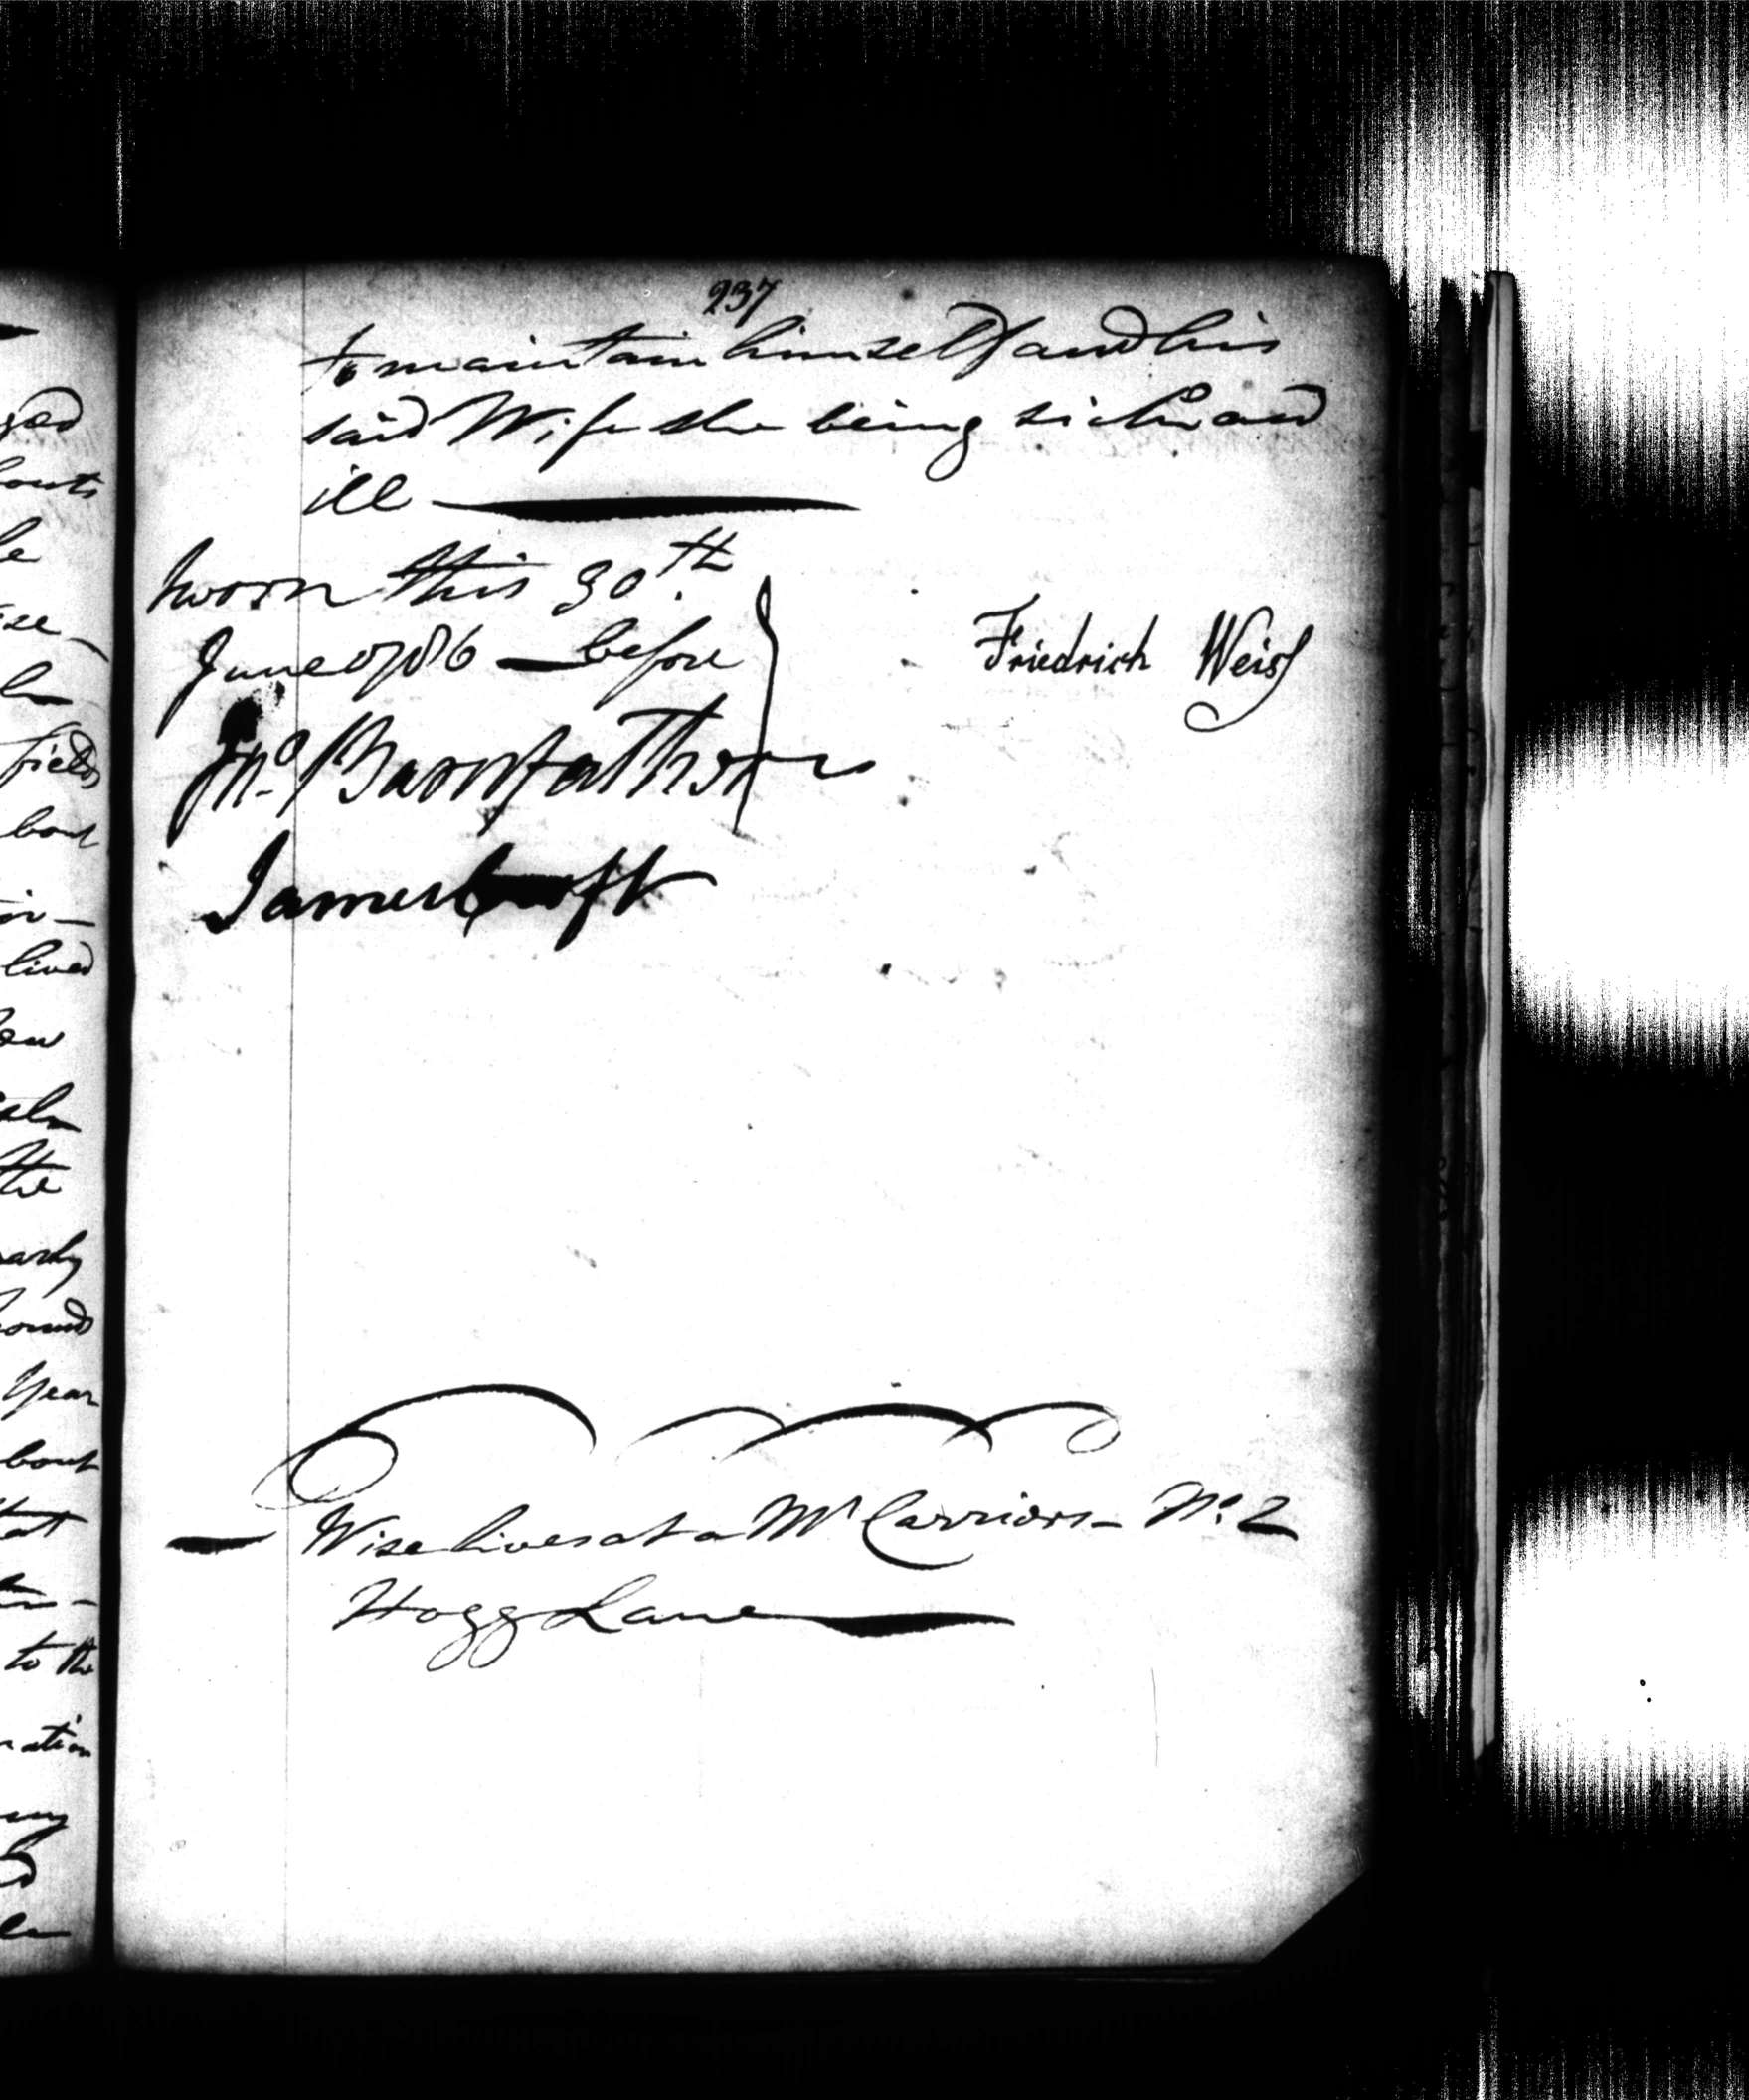 237
to maintain himself and his
said Wife she being sick and
ill
Sworn this 30th
June 1786 before
Jno Barnfather
James Croft
Friedrich Weiss
Wise lives at a Mr Carriors - No. 2
Hogg Lane
gad
fields
bout
lived
the
Year
bout
to the